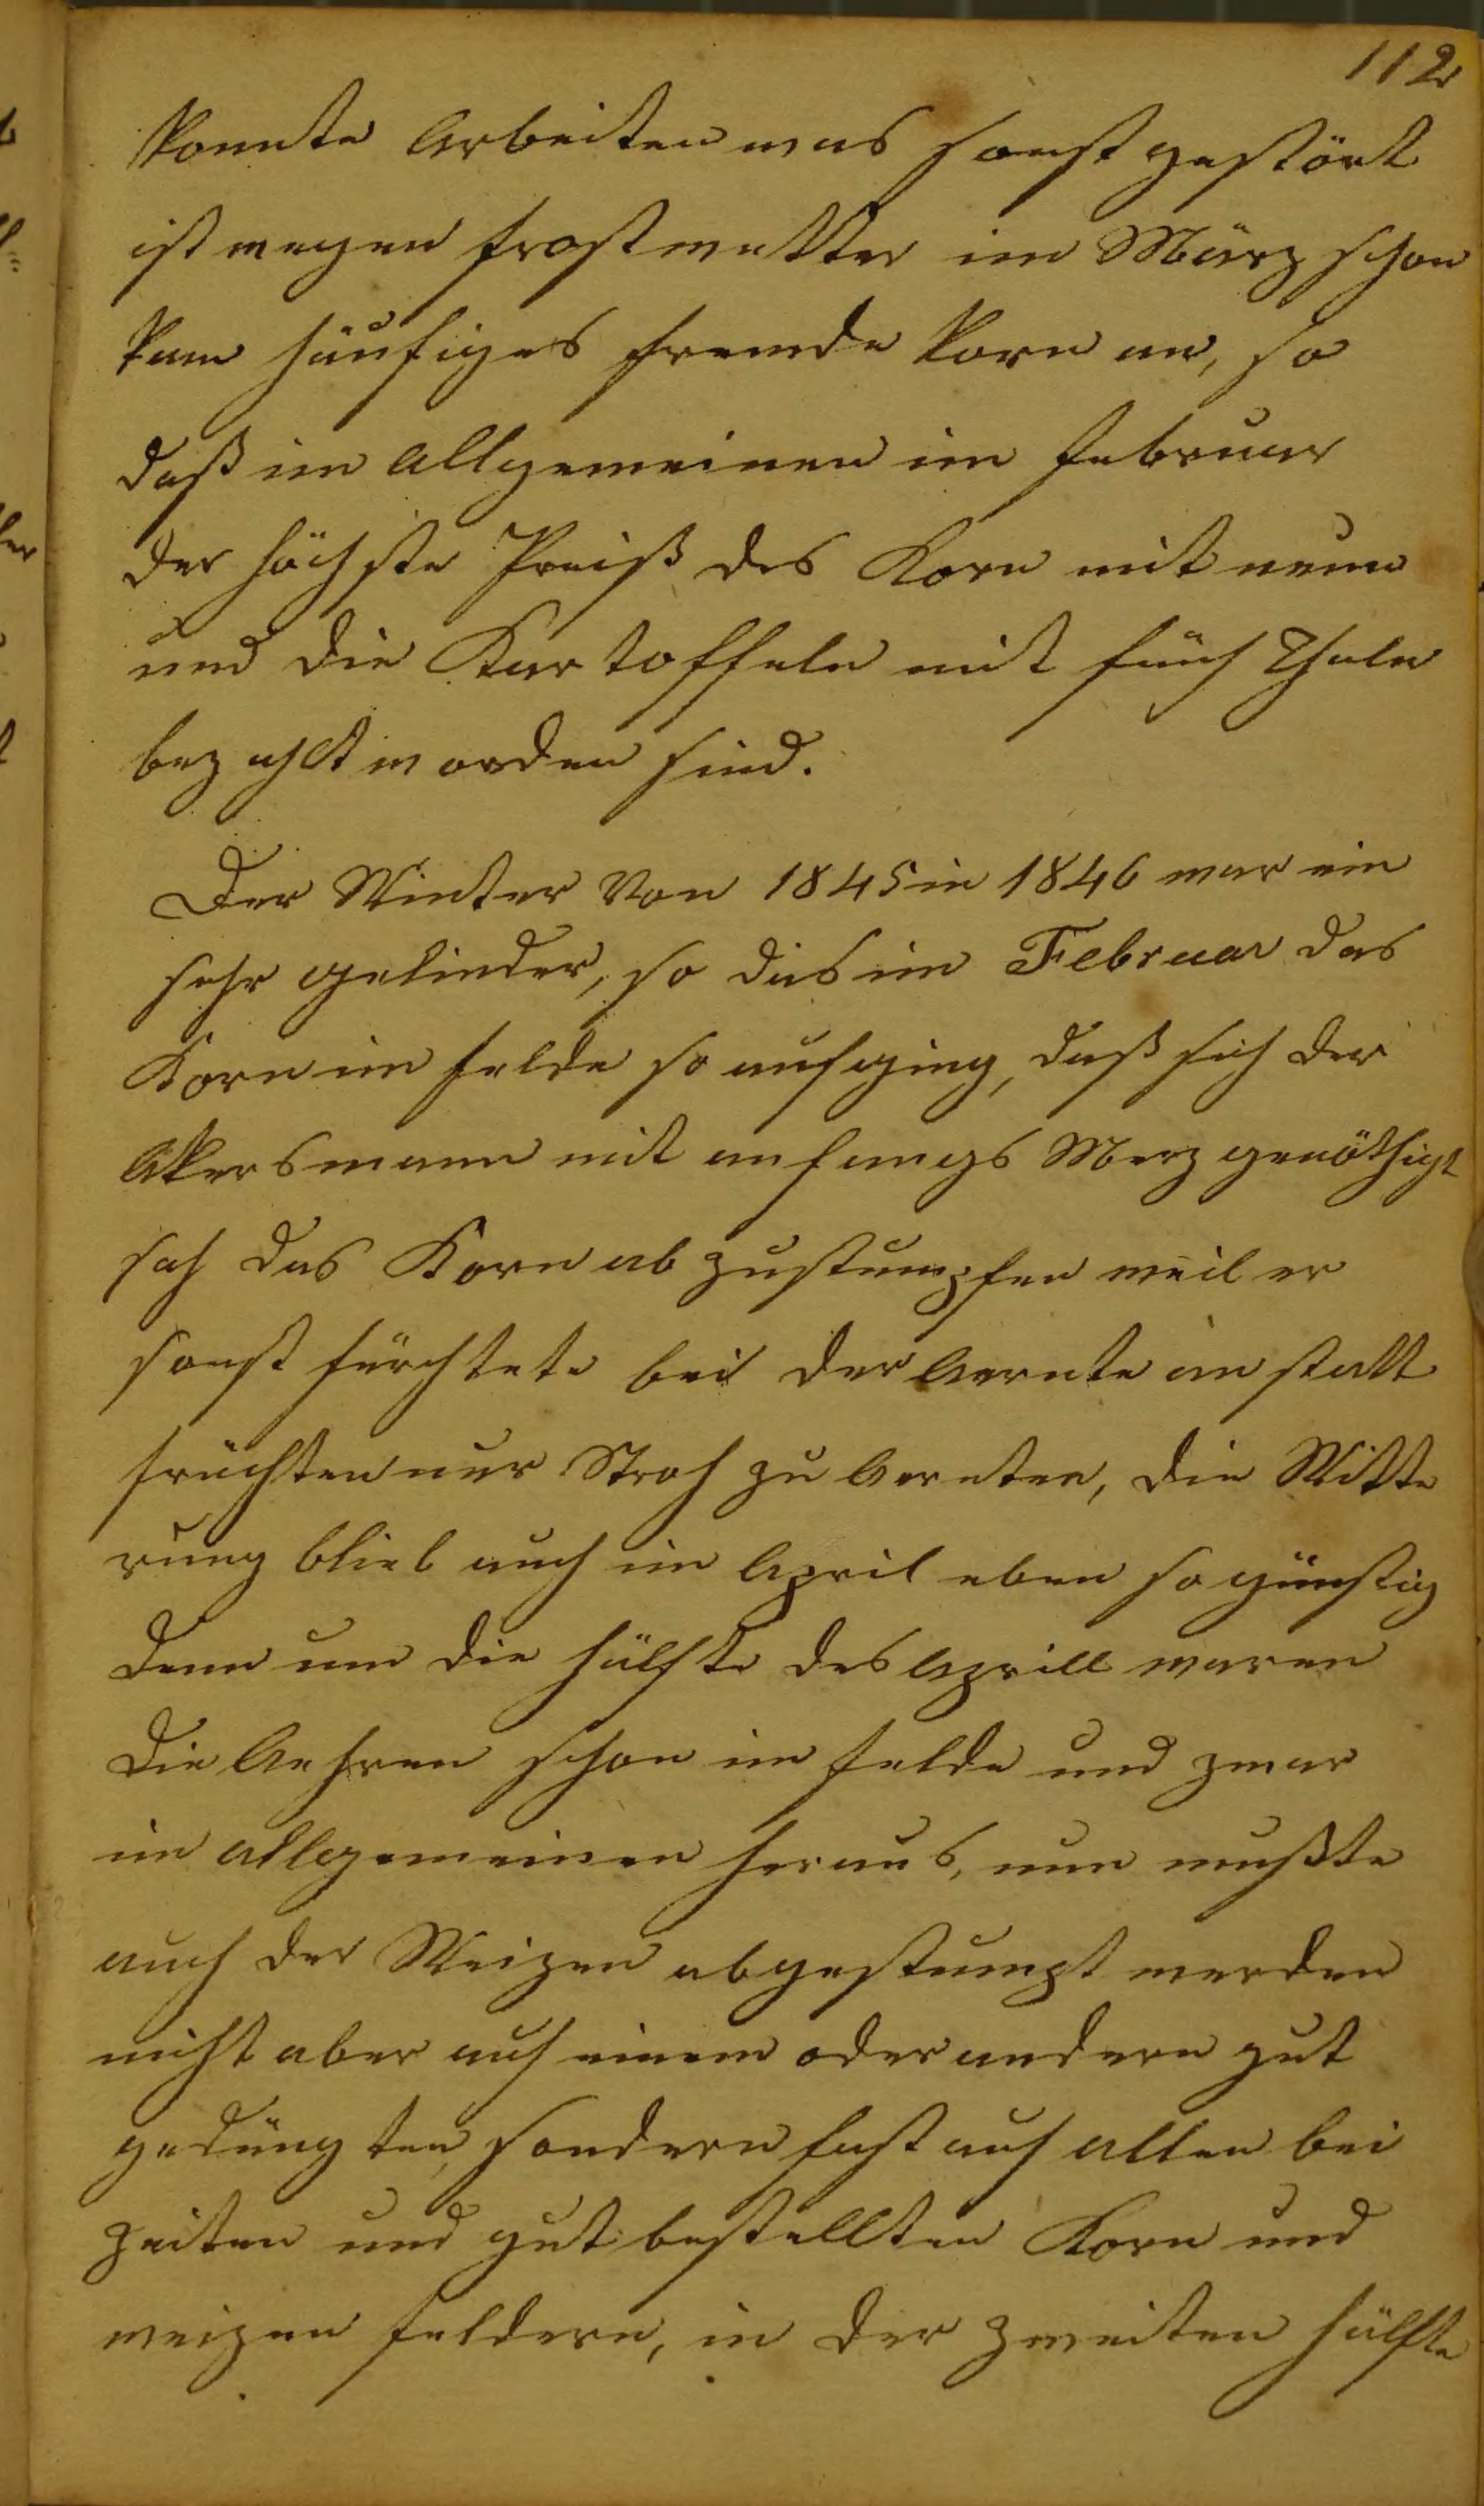 112
konnte Arbeiten was sonst gestört
ist wegen frostwetter im März schon
kam häufiges fremde korn an, so
daß im Allgemeinen im februar
der höchste Preiß des Korn mit neun
und die Kartoffeln mit fünf Thaler
bezahlt worden sind.
Der Winter Von 1845 in 1846 war ein
sehr gelinder, so das im Februar das
Korn im felde so aufging, daß sich der
Akersmann mit anfangs Merz genöthigt
sah das Korn abzustumpfen weil er
sonst fürchtete bei der Aernte anstatt
früchten nur Stroh zu Aernten, die Witte
rung blieb auch im April eben so günstig
Denn um die hälfte des Aprill waren
Die Aehren schon im felde und zwar
im Allgemeinen heraus, nun mußte
auch der Weizen abgestumpt werden
nicht aber auf einem oder andern gut
gedüngten, sondern fast auf allen bei
zeiten und gut bestellten Korn und
weizen feldern, in der zweiten hälfte